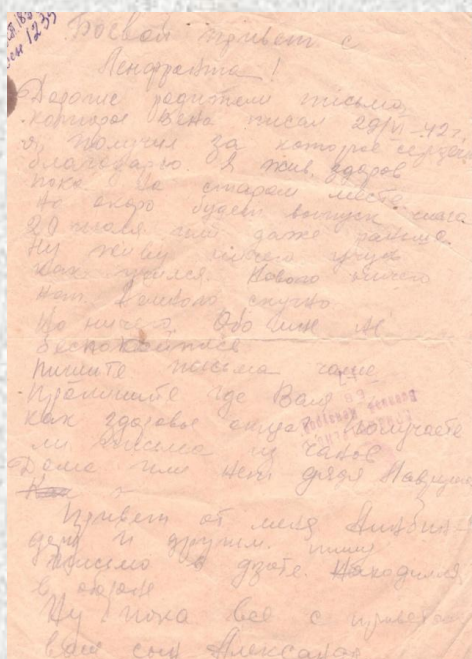 1235
Боевой привет с
Ленфронта!
Дорогие родители письмо,
которое Вена писал 29/VI-42г
я получил за которое сердечно
благодарю. Я жив, здоров
пока на старом месте.
Но скоро будет выпуск
20 июля или даже раньше.
Ну живу ничего учусь
как учился. Нового ничего
нет. Немного скучно
Но ничего. Обо мне не
беспокойтеся
Пишите письма чаще
Пропишите где Валя
как здоровье отца получаете
ли письма из
Дома или нет дядя
Привет от меня
и друзьям. пишу
письмо в дзоте. Находимся
в обороне
Ну пока все с приветом
ваш сын Александр